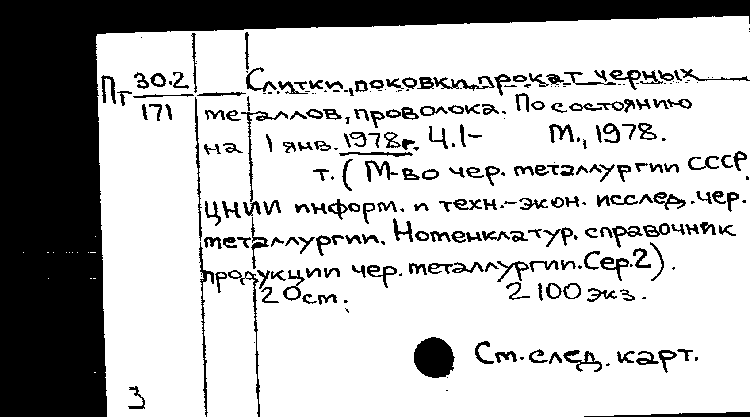 Пг 30.2 Слитки, поковки, прокат черных
171 металлов, проволока. По состоянию
на 1 янв. 1978г. Ч.1- М., 1978.
т. (М-во чер. металлургии СССР.
ЦНИИ информ. и техн.-экон. исслед. чер.
металлургии. Номенклатур. справочник
продукции чер. металлургии. Сер.2).
20см. 2100экз.
См. след. карт.
3